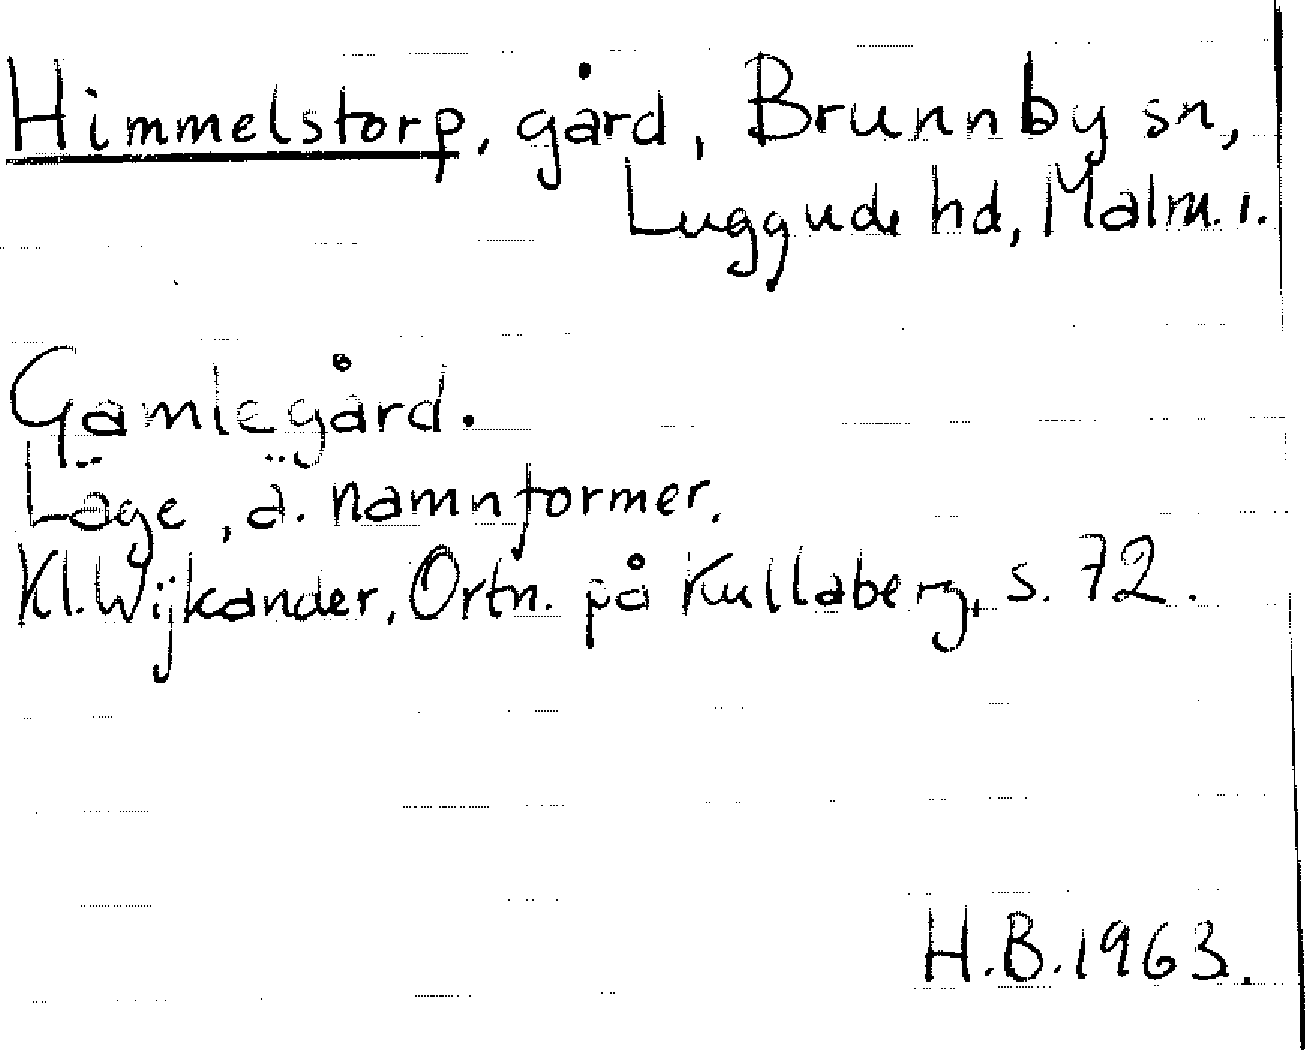 Himmelstorp, gård, Brunnby sn,
Luggude hd, Malm. l.
Gamlegård.
Läge, ä. namnformer.
Kl. Wijkander, Ortn. på Kullaberg, s. 72.
H.B. 1963.